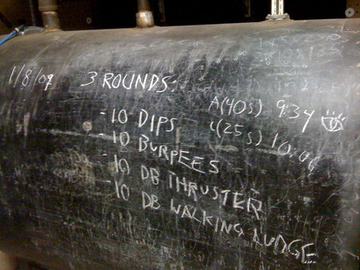 1/8/09 3 ROUNDS:
- 10 DIPS
- 10 BURPEES
- 10 DB THRUSTER
- 10 DB WALKING LUNGE
A(40s) 9:34
L(25s) 10:06